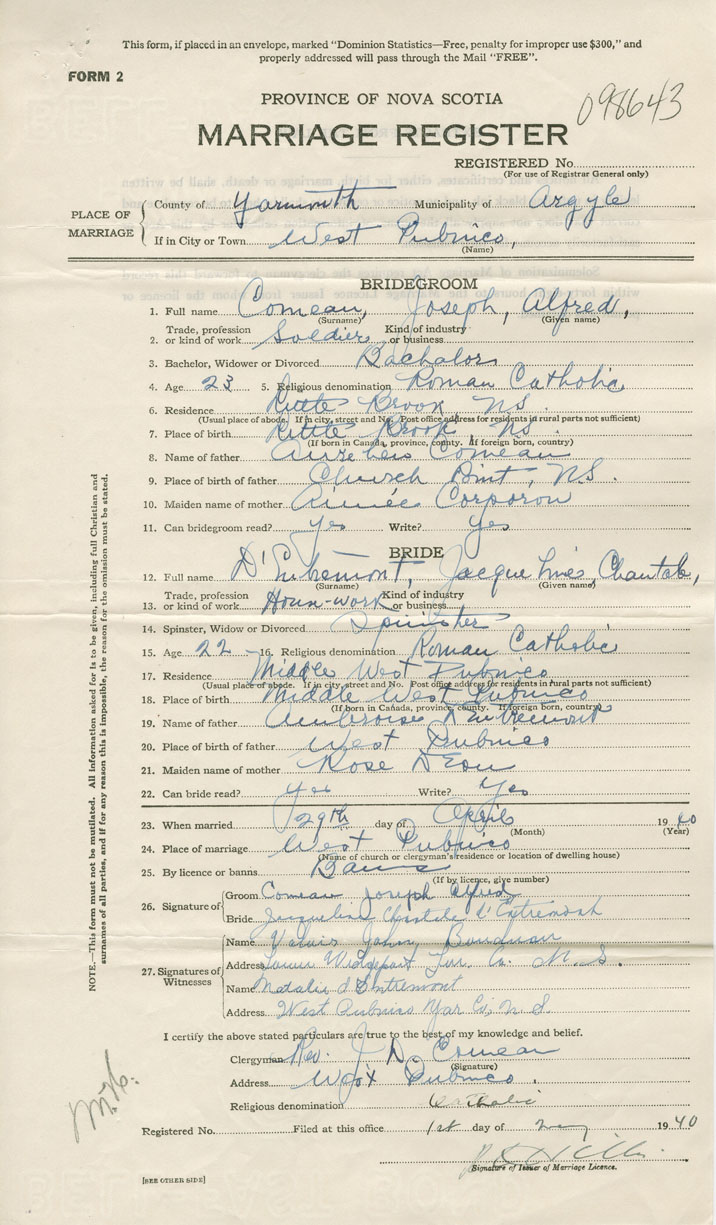 This form, if placed in an envelope, marked "Dominion Statistics—Free, penalty for improper use $300," and
properly addressed will pass through the Mail "FREE".
FORM 2
PROVINCE OF NOVA SCOTIA
098643
MARRIAGE REGISTER
REGISTERED No.
(For use of Registrar General only)
PLACE OF MARRIAGE
County of Yarmouth Municipality of Argyle
If in City or Town West Pubnico,
(Name)
BRIDEGROOM
1. Full name Comeau, Joseph, Alfred,
(Surname) (Given name)
2. Trade, profession or kind of work Soldier Kind of industry or business
3. Bachelor, Widower or Divorced Bachelor
4. Age 23 5. Religious denomination Roman Catholic
6. Residence Little Brook NS
(Usual place of abode. If in city, street and No. Post office address for residents in rural parts not sufficient)
7. Place of birth Little Brook NS
(If born in Canada, province, county. If foreign born, country)
8. Name of father Comeau
9. Place of birth of father Church Point, N.S.
10. Maiden name of mother Aimée Corporon
11. Can bridegroom read? Yes Write? Yes
BRIDE
12. Full name D'Entremont, Chantale,
(Surname) (Given name)
13. Trade, profession or kind of work House-work Kind of industry or business
14. Spinster, Widow or Divorced Spinster
15. Age 22 16. Religious denomination Roman Catholic
17. Residence Middle West Pubnico
(Usual place of abode. If in city, street and No. Post office address for residents in rural parts not sufficient)
18. Place of birth Middle West Pubnico
(If born in Canada, province, county. If foreign born, country)
19. Name of father Ambroise D'Entremont
20. Place of birth of father West Pubnico
21. Maiden name of mother Rose D'Eon
22. Can bride read? Yes Write? Yes
23. When married 29th day of April 1940
(Month) (Year)
24. Place of marriage West Pubnico
(Name of church or clergyman's residence or location of dwelling house)
25. By licence or banns Banns
(If by licence, give number)
26. Signature of
Groom Comeau Joseph Alfred
Bride Jacqueline d'Entremont
27. Signatures of Witnesses
Name John
Address Lower Wedgeport Yar. Co. N.S.
Name Natalie d'Entremont
Address West Pubnico Yar Co. N.S.
I certify the above stated particulars are true to the best of my knowledge and belief.
Clergyman Rev. J. D. Comeau
(Signature)
Address West Pubnico.
Religious denomination Catholic
Registered No. Filed at this office 1st day of May 1940
Signature of Issuer of Marriage Licence.
[SEE OTHER SIDE]
NOTE.—This form must not be mutilated. All information asked for is to be given, including full Christian and
surnames of all parties, and if for any reason this is impossible, the reason for the omission must be stated.